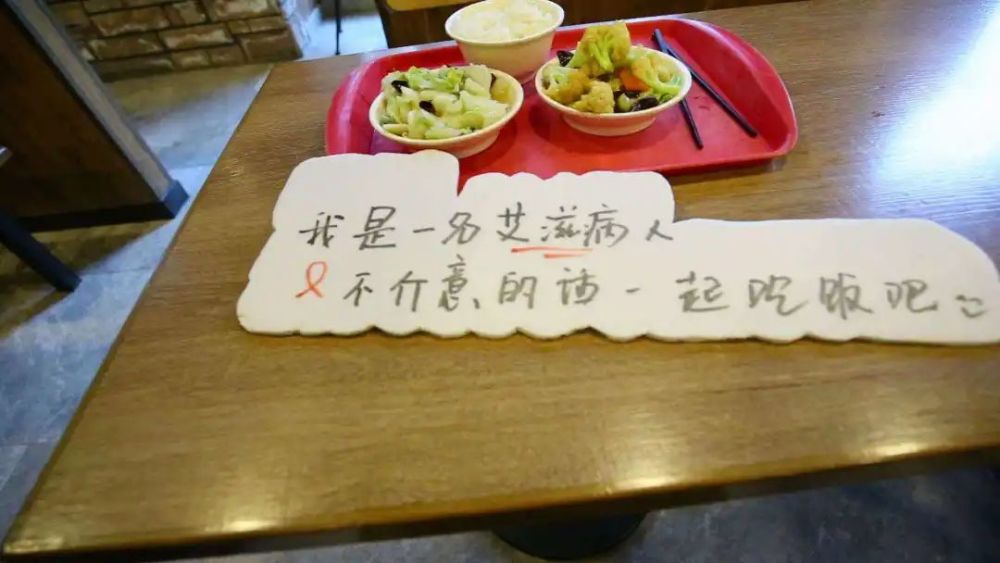 我是一名艾滋病人
不介意的话一起吃饭吧